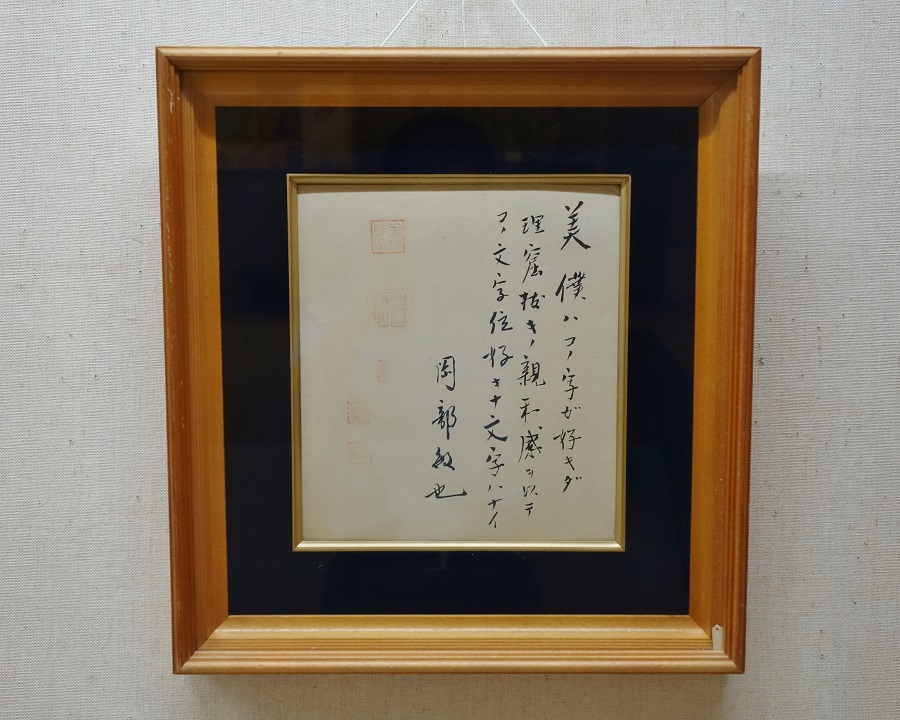 美 僕ハコノ字ガ好キダ
理窟抜キノ親和感ヲ以テ
コノ文字位好キナ文字ハナイ
岡部敏也